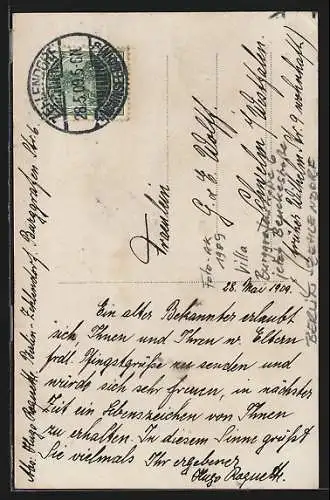 ZEHLENDORF
28.5.09. 5-6N
Fraeulein
G. v. E. Wolff.
Menden / Westfalen.
Foto-AK
1909
Villa
Burggrafenstraße 6
BERLIN-ZEHLENDORF
28. Mai 1909.
Ein alter Bekannter erlaubt
sich, Ihnen und Ihren w. Eltern
frdl. Pfingstgrüße zu senden und
würde sich sehr freuen, in nächster
Zeit ein Lebenszeichen von Ihnen
zu erhalten. In diesem Sinne grüßt
Sie vielmals Ihr ergebener
Hugo Raguett.
Hugo Raguett. Berlin-Zehlendorf, Burggrafen Str. 6.